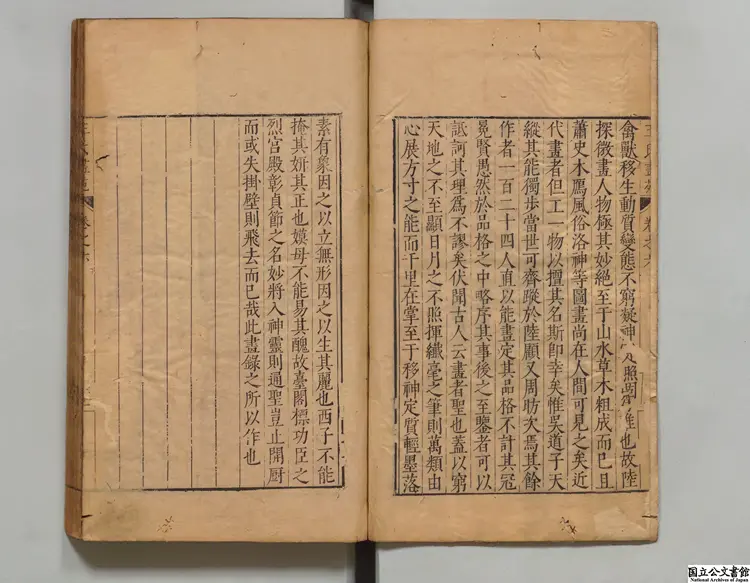 禽獸移生動質變態不窮凝神定照固為難也故陸
探微畫人物極其妙絕至于山水草木粗成而已且
蕭史木鴈風俗洛神等圖畫尚在人間可見之矣近
代畫者但工一物以擅其名斯即幸矣惟吳道子天
縱其能獨步當世可齊蹤於陸顧又周昉次焉其餘
作者一百二十四人直以能畫定其品格不計其冠
冕賢愚然於品格之中略序其事後之至鑒者可以
詆訶其理為不謬矣伏聞古人云畫者聖也蓋以窮
天地之不至顯日月之不照揮纖毫之筆則萬類由
心展方寸之能而千里在掌至于移神定質輕墨落
素有象因之以立無形因之以生其麗也西子不能
掩其妍其正也嫫母不能易其醜故臺閣標功臣之
烈宮殿彰貞節之名妙將入神靈則通聖豈止開厨
而或失掛壁則飛去而已哉此畫錄之所以作也
王氏畫苑
卷之六
国立公文書館
National Archives of Japan